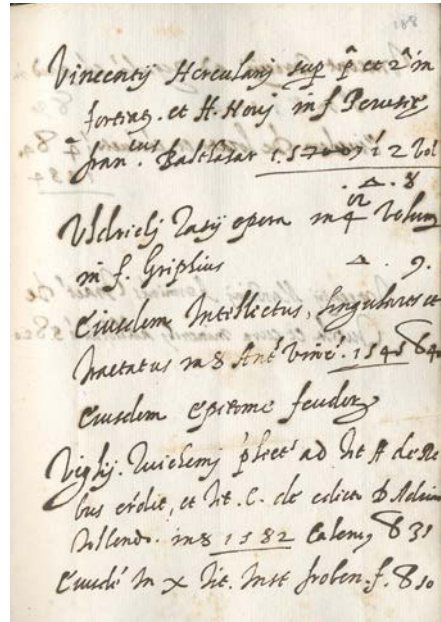 Vincentij Herculanj sup p̄ et 2ā in
fortiaz. et ff. Novj in f Perusiæ
fran.cus Balthasar 1570 in 2 Vol
. △ . 8
Vldricij Zasij opera in 4 Volum
in f. Griphius △ . 9.
Eiusdem Intellectus, singulares et
tractatus in 8 Ant. Vinc. 1545
Eiusdem epitome feudorz
Viglij. Zuichemj plect ad tit ff de Re
bus credit, et tit. C. de edicto D. Adriani
tollendo. in 8 1582
Eiusdē In X tit. Inst froben. f.